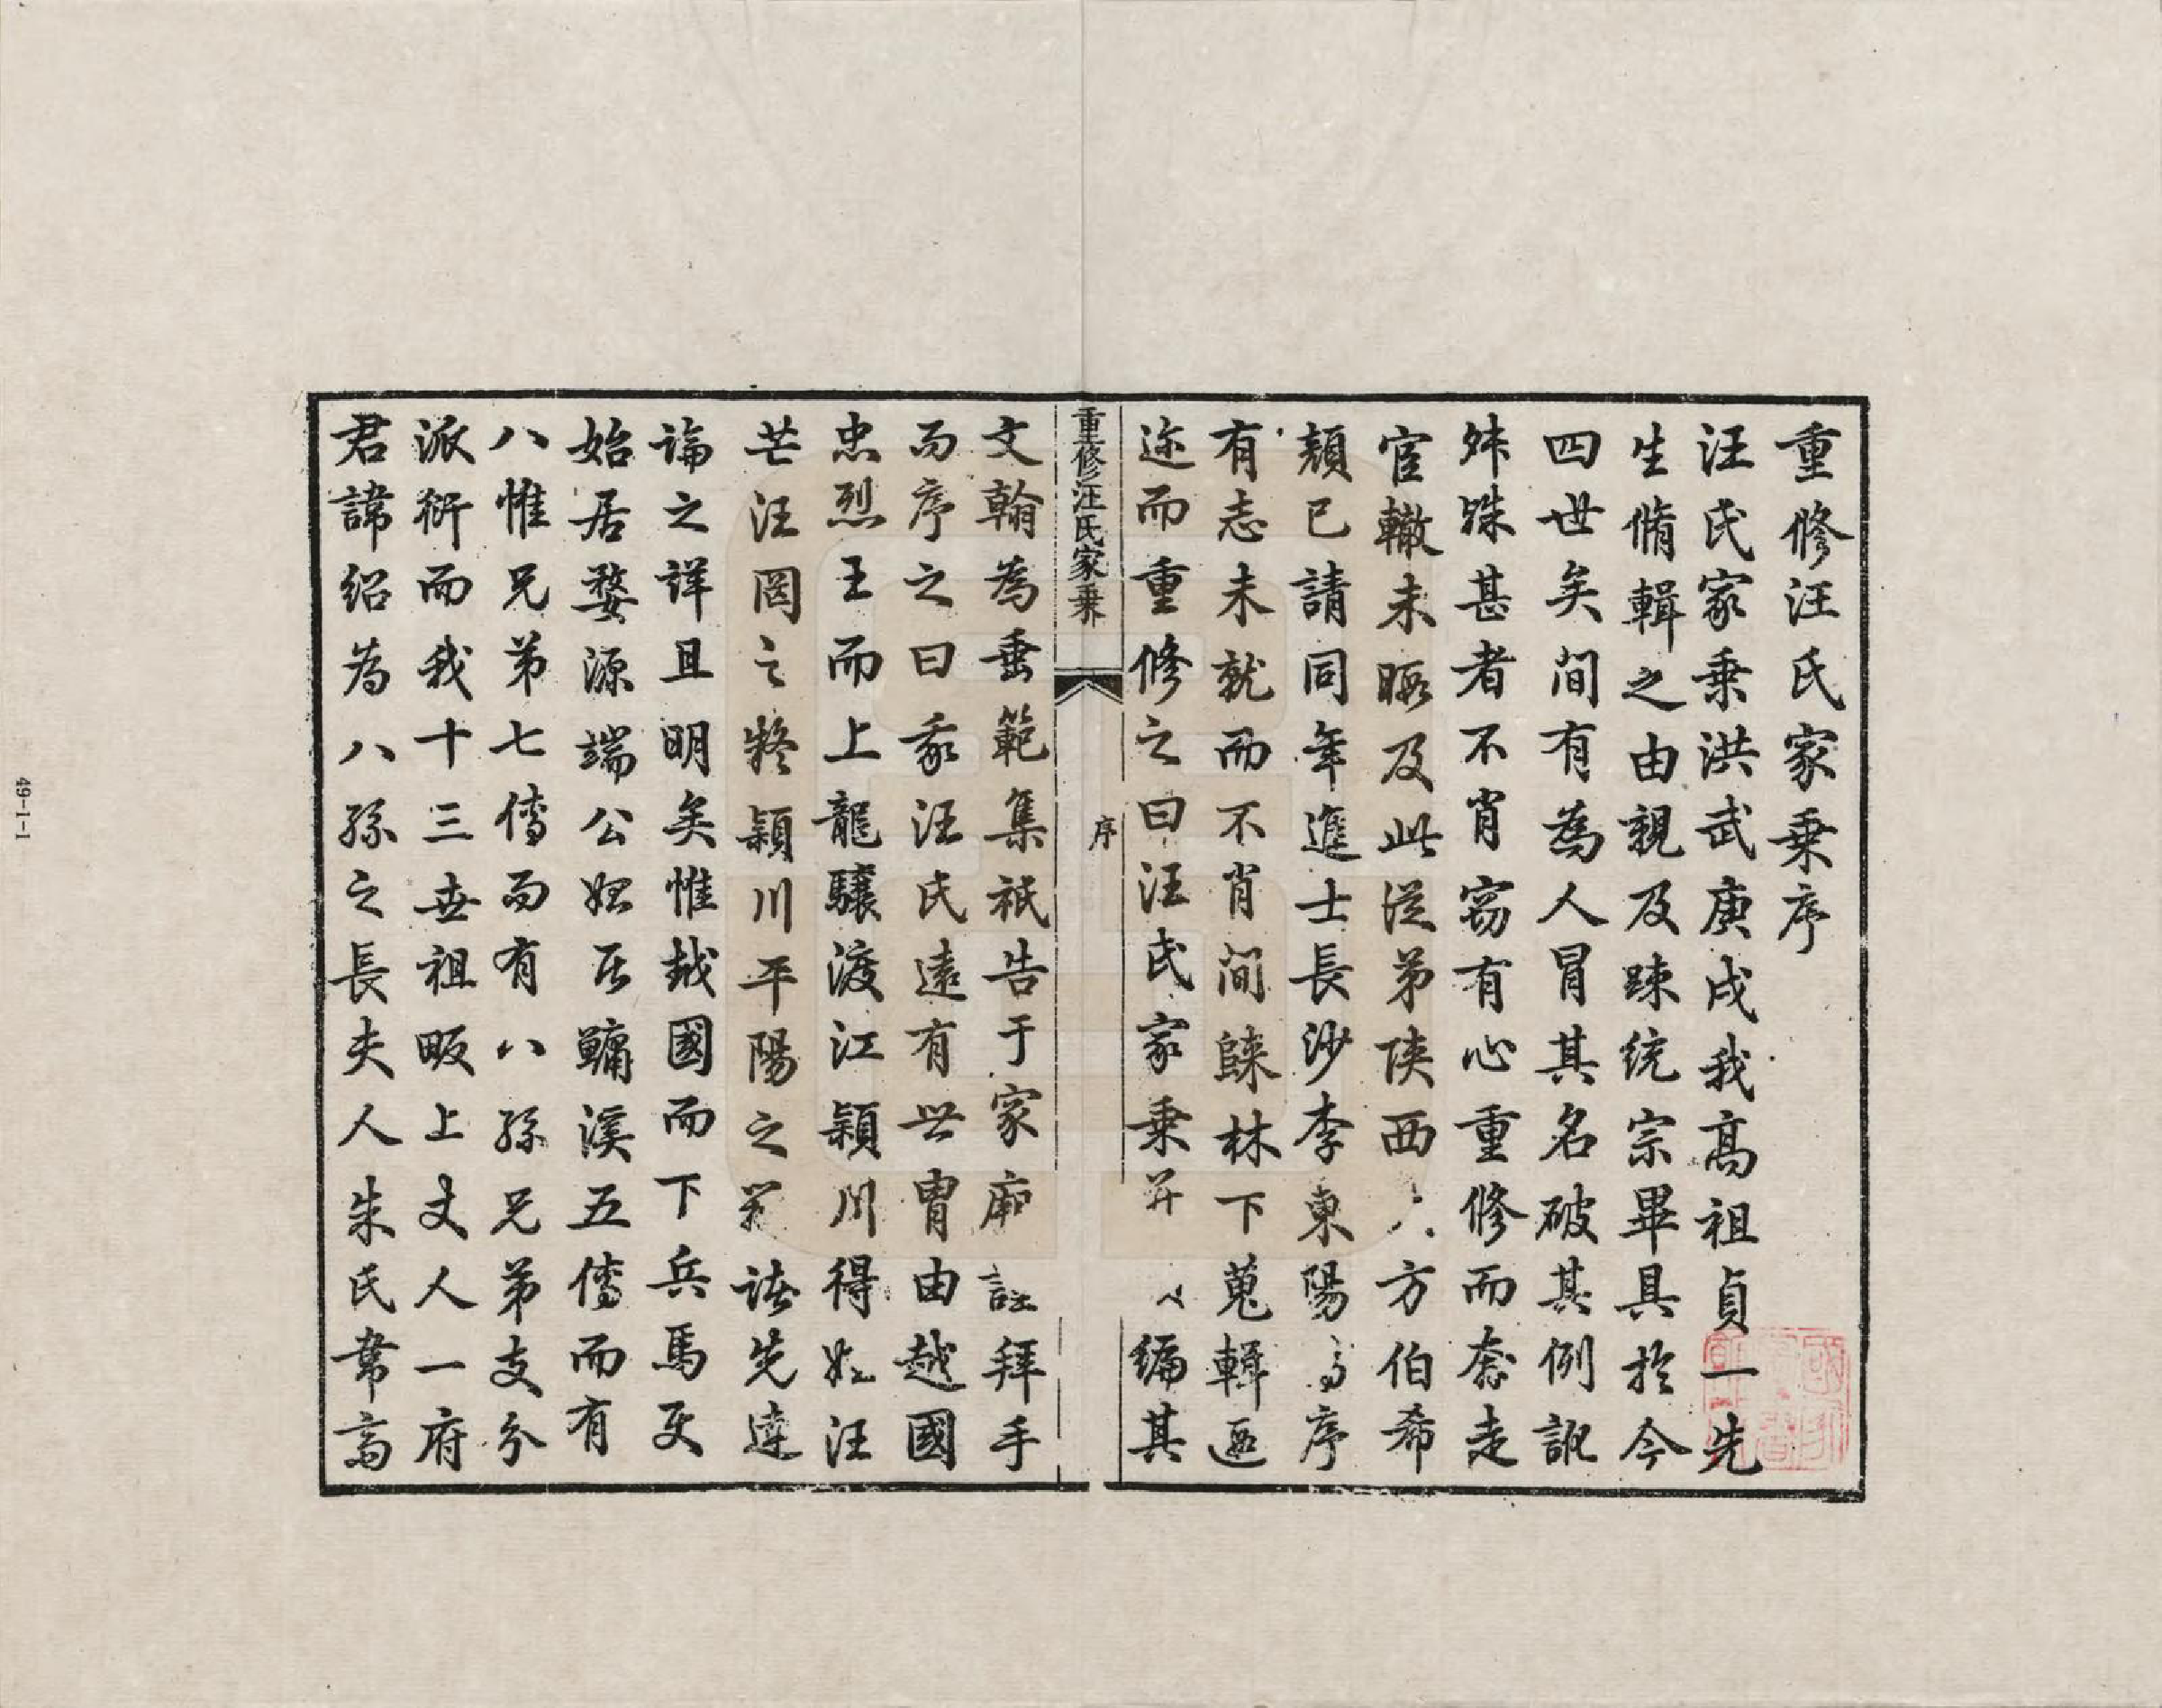 重修汪氏家乗序
汪氏家乗洪武庚戌我髙祖貞一先
生脩輯之由親及踈統宗畢具於今
四世矣間有為人冒其名破其例訛
舛殊甚者不肖窃有心重修而奈走
宦轍未暇及此從弟陕西方伯希
顔已請同年進士長沙李東陽序
有志未就而不肖間歸林下蒐輯
迹而重修之曰汪氏家乗并編其
重修汪氏家乗
序
文翰為垂範集祇告于家廟註拜手
而序之曰我汪氏逺有世胄由越國
忠烈王而上龍驤渡江潁川得姓汪
芒汪罔之疑潁川平陽之諸先達
論之詳且明矣惟越國而下兵馬
始居婺源端公始居鱅溪五傳而有
八惟兄弟七傳而有八孫兄弟支分
派衍而我十三世祖畈上丈人一府
君諱紹為八孫之長夫人朱氏常髙
49-1-1